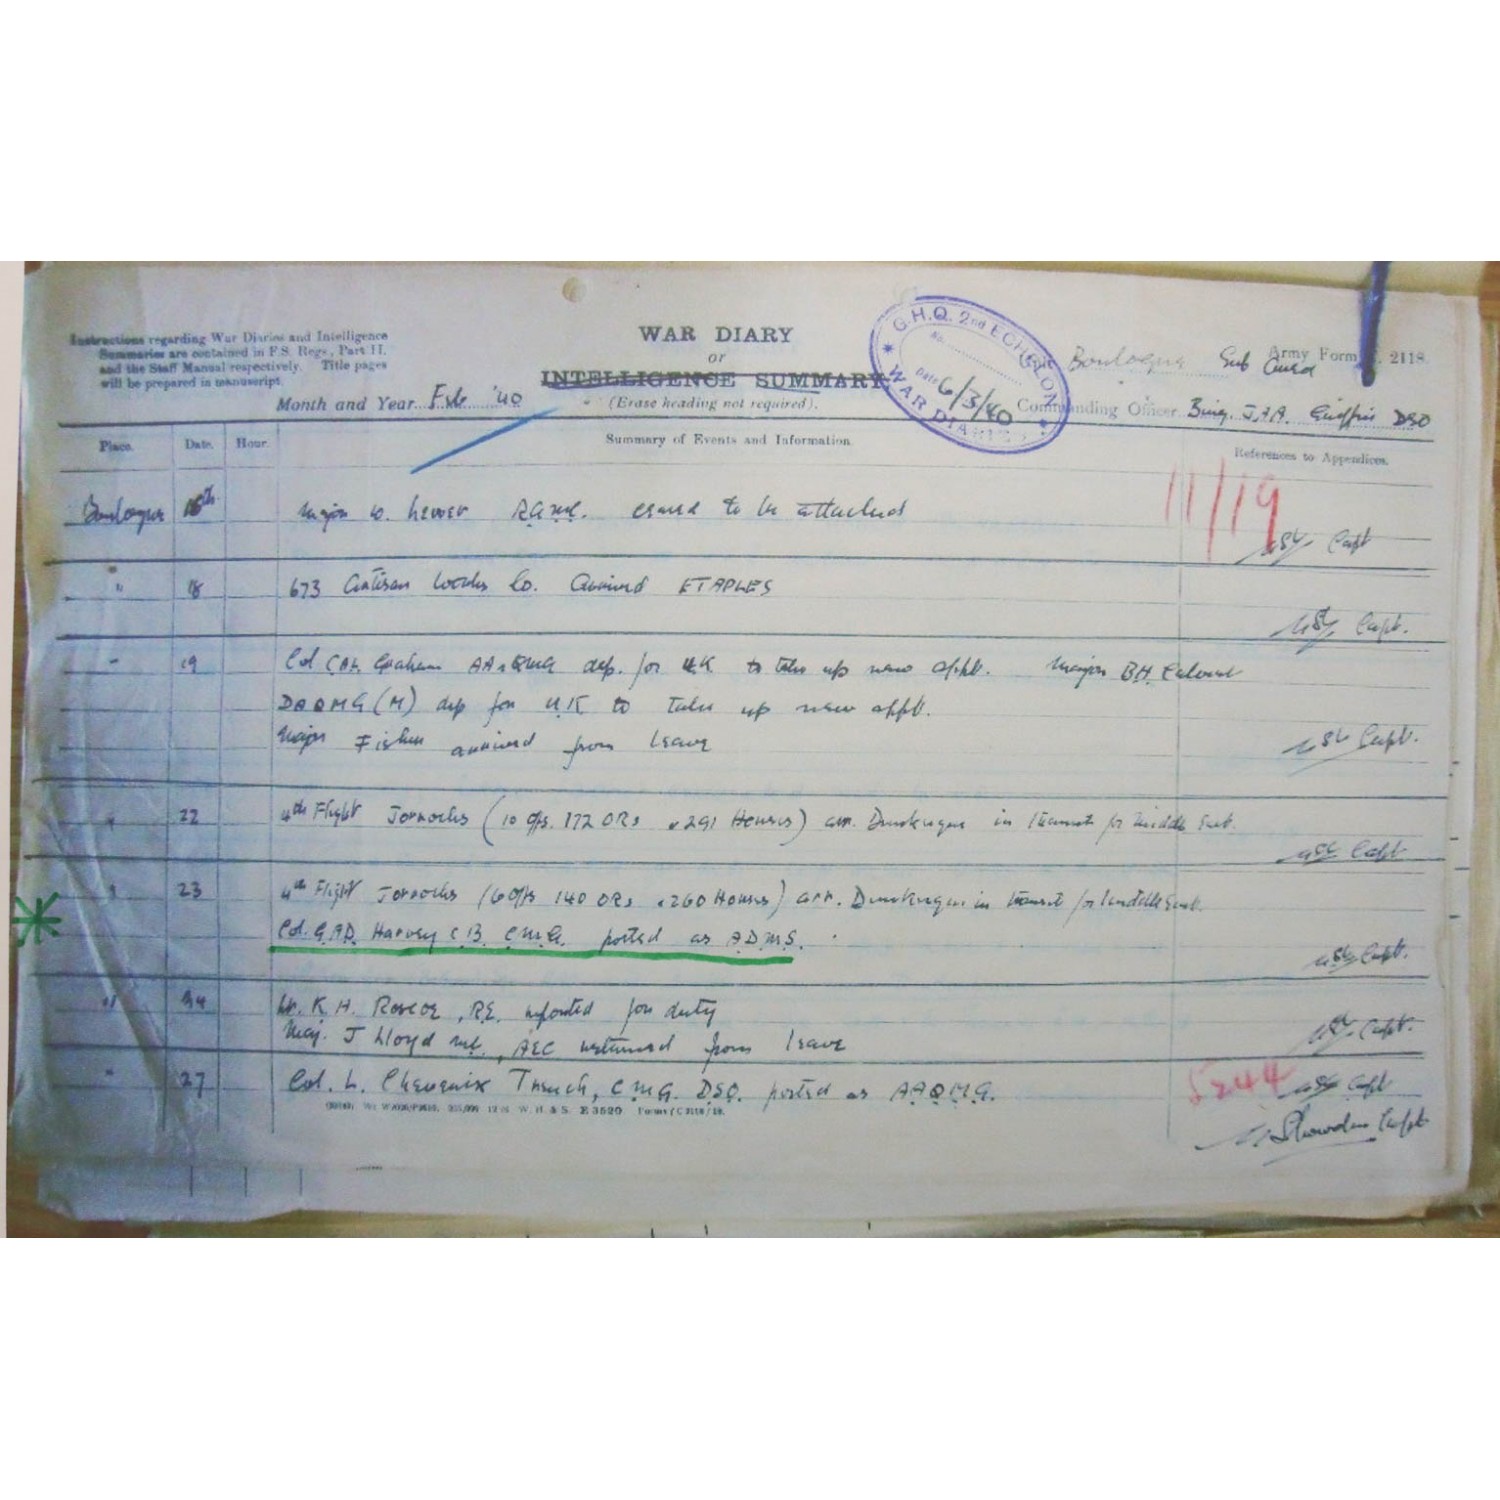 Instructions regarding War Diaries and Intelligence
Summaries are contained in F.S. Regs., Part II.
and the Staff Manual respectively. Title pages
will be prepared in manuscript.
Month and Year Feb '40
WAR DIARY
or
INTELLIGENCE SUMMARY
(Erase heading not required).
G.H.Q. 2nd ECHELON
No.
Date 6/3/40
WAR DIARIES
Boulogne Sub Area
Army Form 2118.
Commanding Officer Brig. J.A.A. Griffin DSO
Place. Date. Hour. Summary of Events and Information. References to Appendices.
11/19
Boulogne 16th Major W. R.A.M.C. ceased to be attached
Capt
" 18 673 Artisan Works Co. Arrived ETAPLES
Capt.
" 19 Col C.A.H. Graham AA&QMG dep. for UK to take up new appt. Major B.H. Calvert
DAQMG (M) dep for UK to take up new appt.
Major Fisher arrived from leave
Capt.
" 22 4th Flight Jorrocks (10 Offs. 172 ORs & 291 Horses) arr. Dunkirque in transit for Middle East.
Capt
" 23 4th Flight Jorrocks (6 Offs 140 ORs & 260 Horses) arr. Dunkirque in transit for Middle East.
Col. G.A.D. Harvey C.B. C.M.G. posted as A.D.M.S.
Capt.
" 24 Lt. K. H. Roscoe, R.E. reported for duty
Maj. J Lloyd MC., AEC returned from leave
Capt.
" 27 Col. L. Chevenix Trench, C.M.G. D.S.O. posted as A.A.Q.M.G.
5244
Capt
W. H. & S. E 3520 Forms/C 2118/19.
Capt